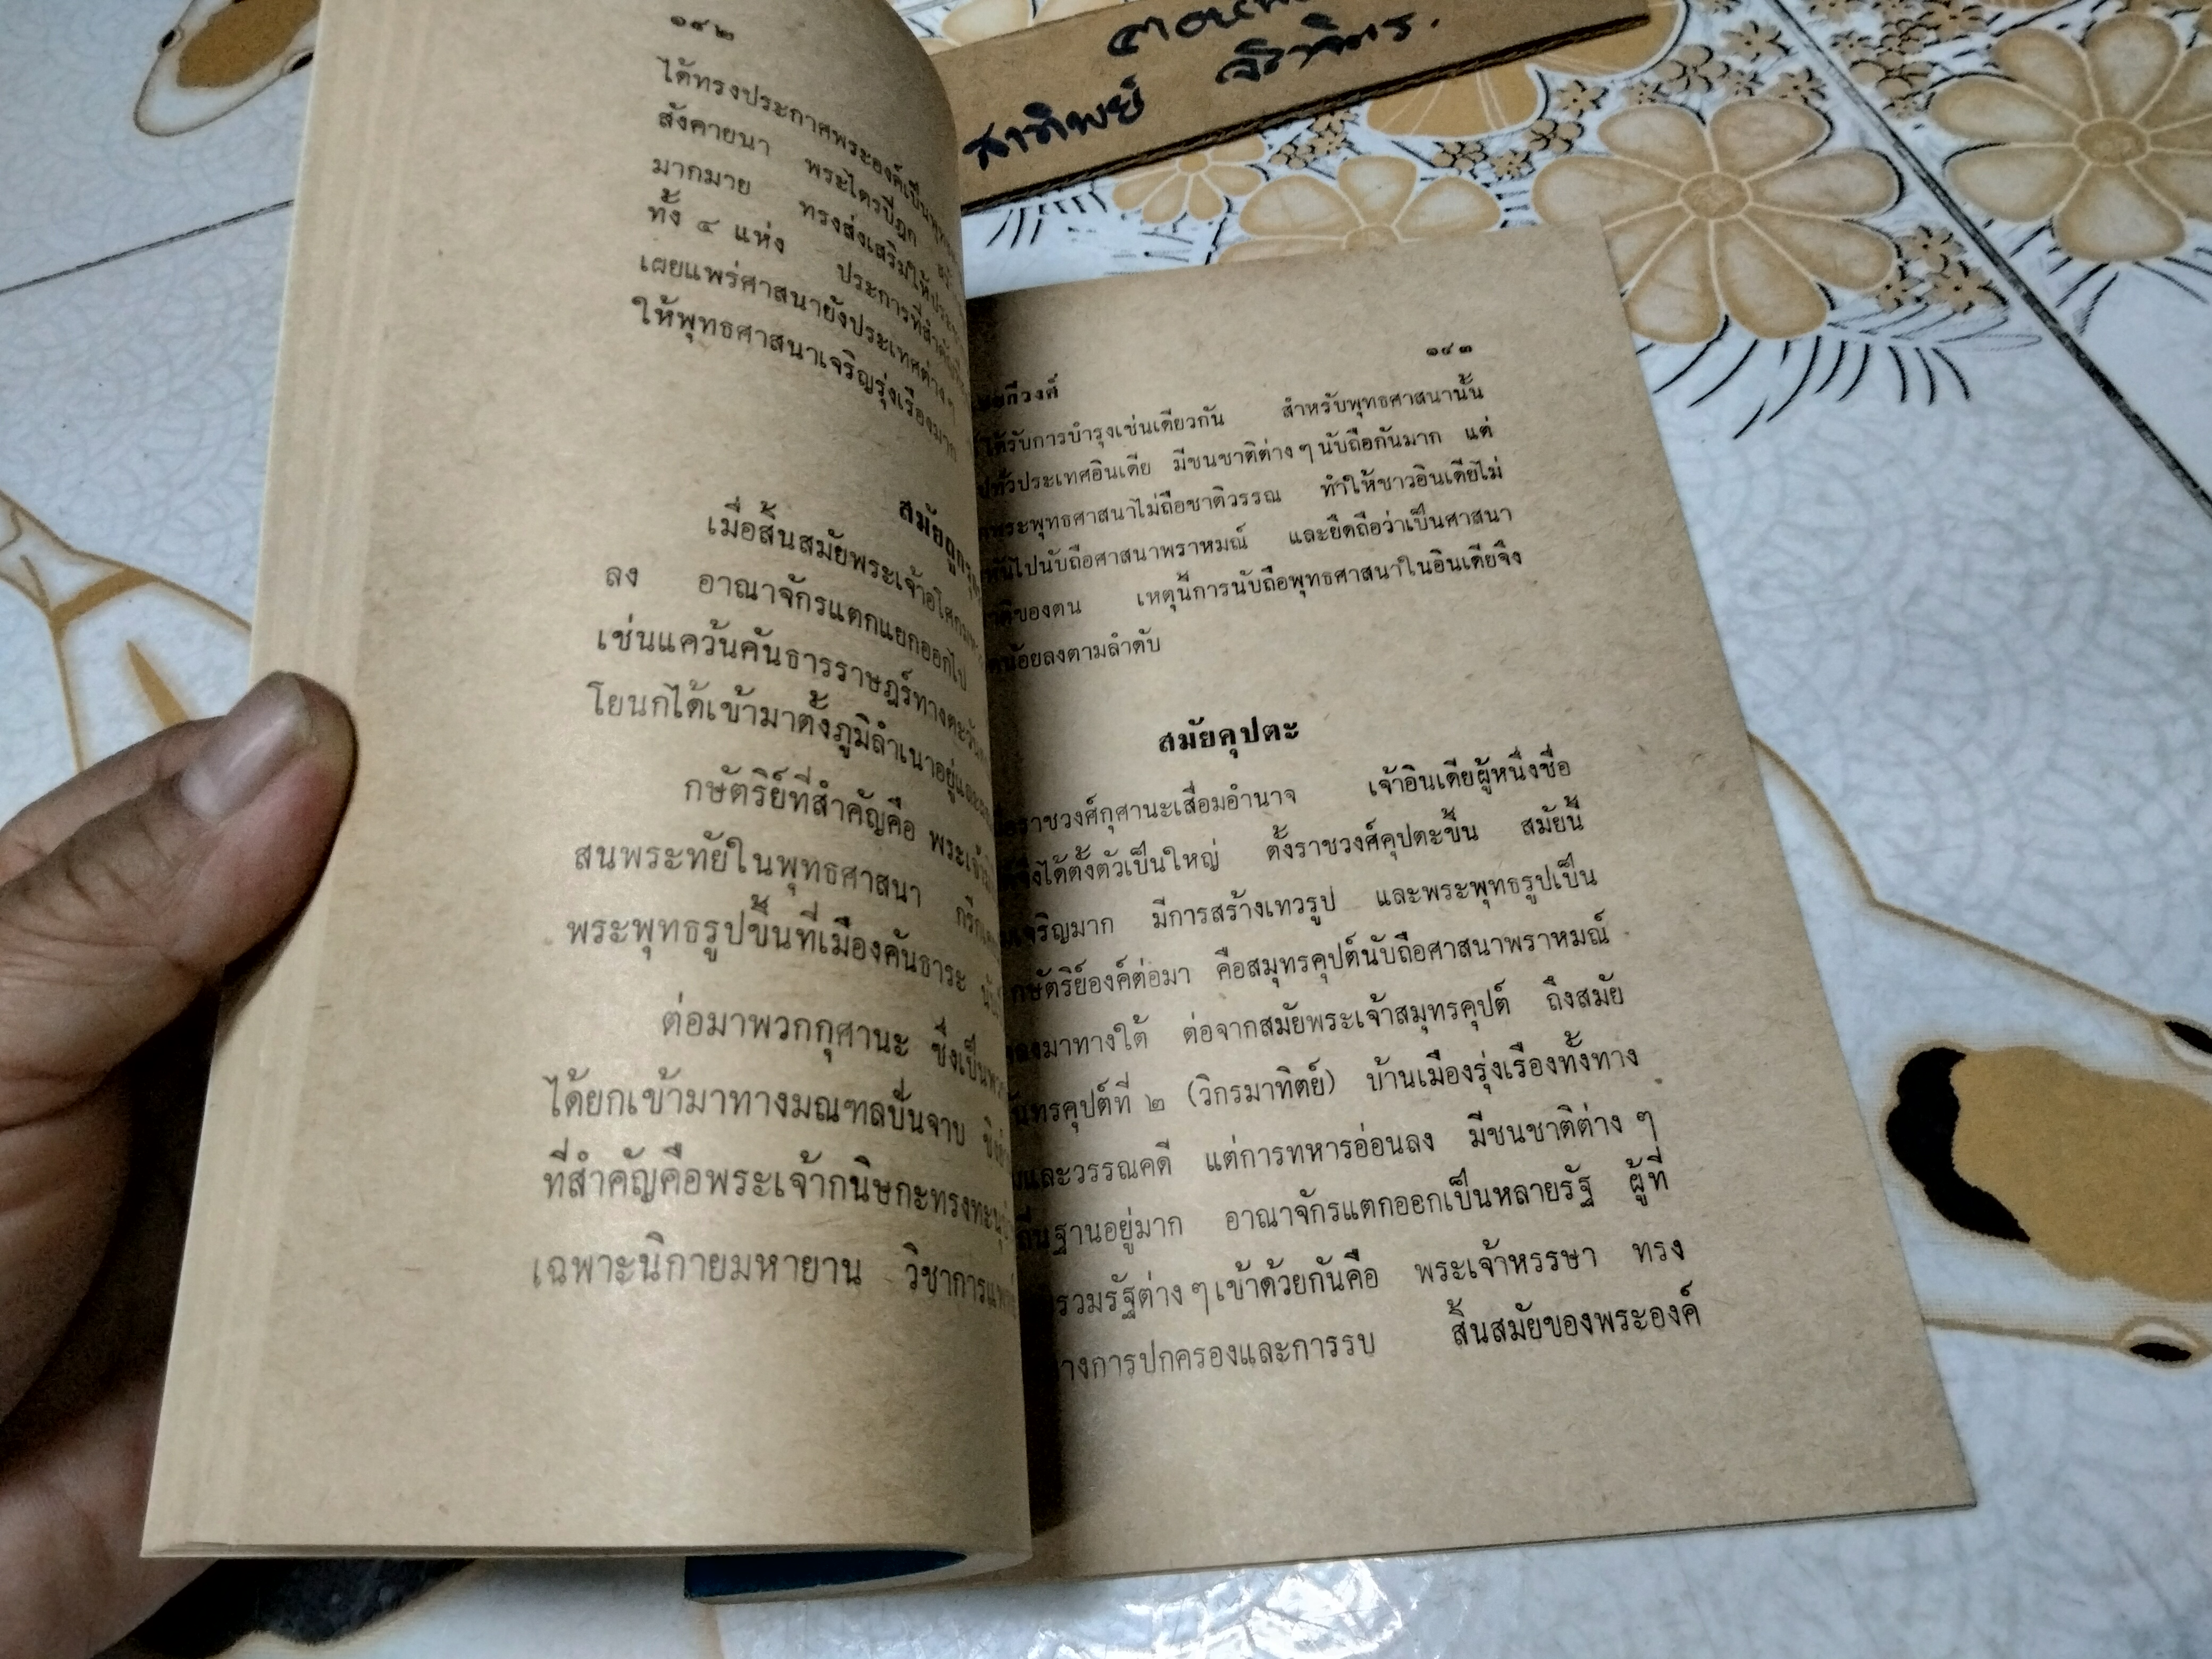 ๑๔๒
ได้ทรงประกาศพระองค์เป็น
สังคายนา พระไตรปิฎก
มากมาย ทรงส่งเสริมให้
ทั้ง ๔ แห่ง ประการที่สำคัญ
เผยแพร่ศาสนายังประเทศต่าง ๆ
ให้พุทธศาสนาเจริญรุ่งเรืองมาก
เมื่อสิ้นสมัยพระเจ้าอโศก
ลง อาณาจักรแตกแยกออกไป
เช่นแคว้นคันธารราษฎร์ทางตะวัน
โยนกได้เข้ามาตั้งภูมิลำเนาอยู่
กษัตริย์ที่สำคัญคือ พระเจ้า
สนพระทัยในพุทธศาสนา
พระพุทธรูปขึ้นที่เมืองคันธาระ
ต่อมาพวกกุศานะ ซึ่งเป็น
ได้ยกเข้ามาทางมณฑลปัญจาบ
ที่สำคัญคือพระเจ้ากนิษกะทรง
เฉพาะนิกายมหายาน วิชาการ
สาทิพย์
๑๔๓
ได้รับการบำรุงเช่นเดียวกัน สำหรับพุทธศาสนานั้น
ทั่วประเทศอินเดีย มีชนชาติต่าง ๆ นับถือกันมาก แต่
พระพุทธศาสนาไม่ถือชาติวรรณ ทำให้ชาวอินเดียไม่
หันไปนับถือศาสนาพราหมณ์ และยึดถือว่าเป็นศาสนา
ของตน เหตุนี้การนับถือพุทธศาสนาในอินเดียจึง
น้อยลงตามลำดับ
สมัยคุปตะ
ราชวงศ์กุศานะเสื่อมอำนาจ เจ้าอินเดียผู้หนึ่งชื่อ
จึงได้ตั้งตัวเป็นใหญ่ ตั้งราชวงศ์คุปตะขึ้น สมัยนี้
เจริญมาก มีการสร้างเทวรูป และพระพุทธรูปเป็น
กษัตริย์องค์ต่อมา คือสมุทรคุปต์นับถือศาสนาพราหมณ์
ลงมาทางใต้ ต่อจากสมัยพระเจ้าสมุทรคุปต์ ถึงสมัย
จันทรคุปต์ที่ ๒ (วิกรมาทิตย์) บ้านเมืองรุ่งเรืองทั้งทาง
และวรรณคดี แต่การทหารอ่อนลง มีชนชาติต่าง ๆ
ถิ่นฐานอยู่มาก อาณาจักรแตกออกเป็นหลายรัฐ ผู้ที่
รวมรัฐต่าง ๆ เข้าด้วยกันคือ พระเจ้าหรรษา ทรง
ทางการปกครองและการรบ สิ้นสมัยของพระองค์